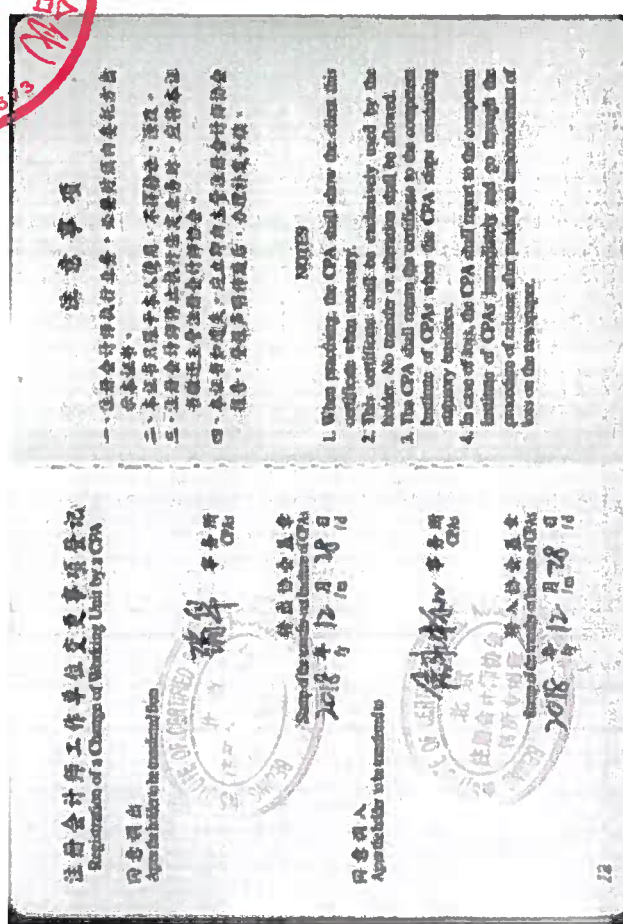 注册会计师工作单位变更事项登记
Registration of a Change of Working Unit by a CPA
同意调出
Agree the holder to be transferred from
瑞华 事务所
CPAs
转出协会盖章
Stamp of the transfer-out Institute of CPAs
2018 年 12 月 28 日
/y /m /d
同意调入
Agree the holder to be transferred to
事务所
CPAs
转入协会盖章
Stamp of the transfer-in Institute of CPAs
2018 年 12 月 28 日
/y /m /d
北京
注册会计师协会
12
注意事项
一、注册会计师执行业务,必要时须向委托方出
示本证书。
二、本证书只限于本人使用,不得转让、涂改。
三、注册会计师停止执行法定业务时,应将本证
书缴还主管注册会计师协会。
四、本证书如遗失,应立即向主管注册会计师协会
报告,登报声明作废后,办理补发手续。
NOTES
1. When practising, the CPA shall show the client this
certificate when necessary.
2. This certificate shall be exclusively used by the
holder. No transfer or alteration shall be allowed.
3. The CPA shall return the certificate to the competent
Institute of CPAs when the CPA stops conducting
statutory business.
4. In case of loss, the CPA shall report to the competent
Institute of CPAs immediately and go through the
procedure of reissue after making an announcement of
loss on the newspaper.